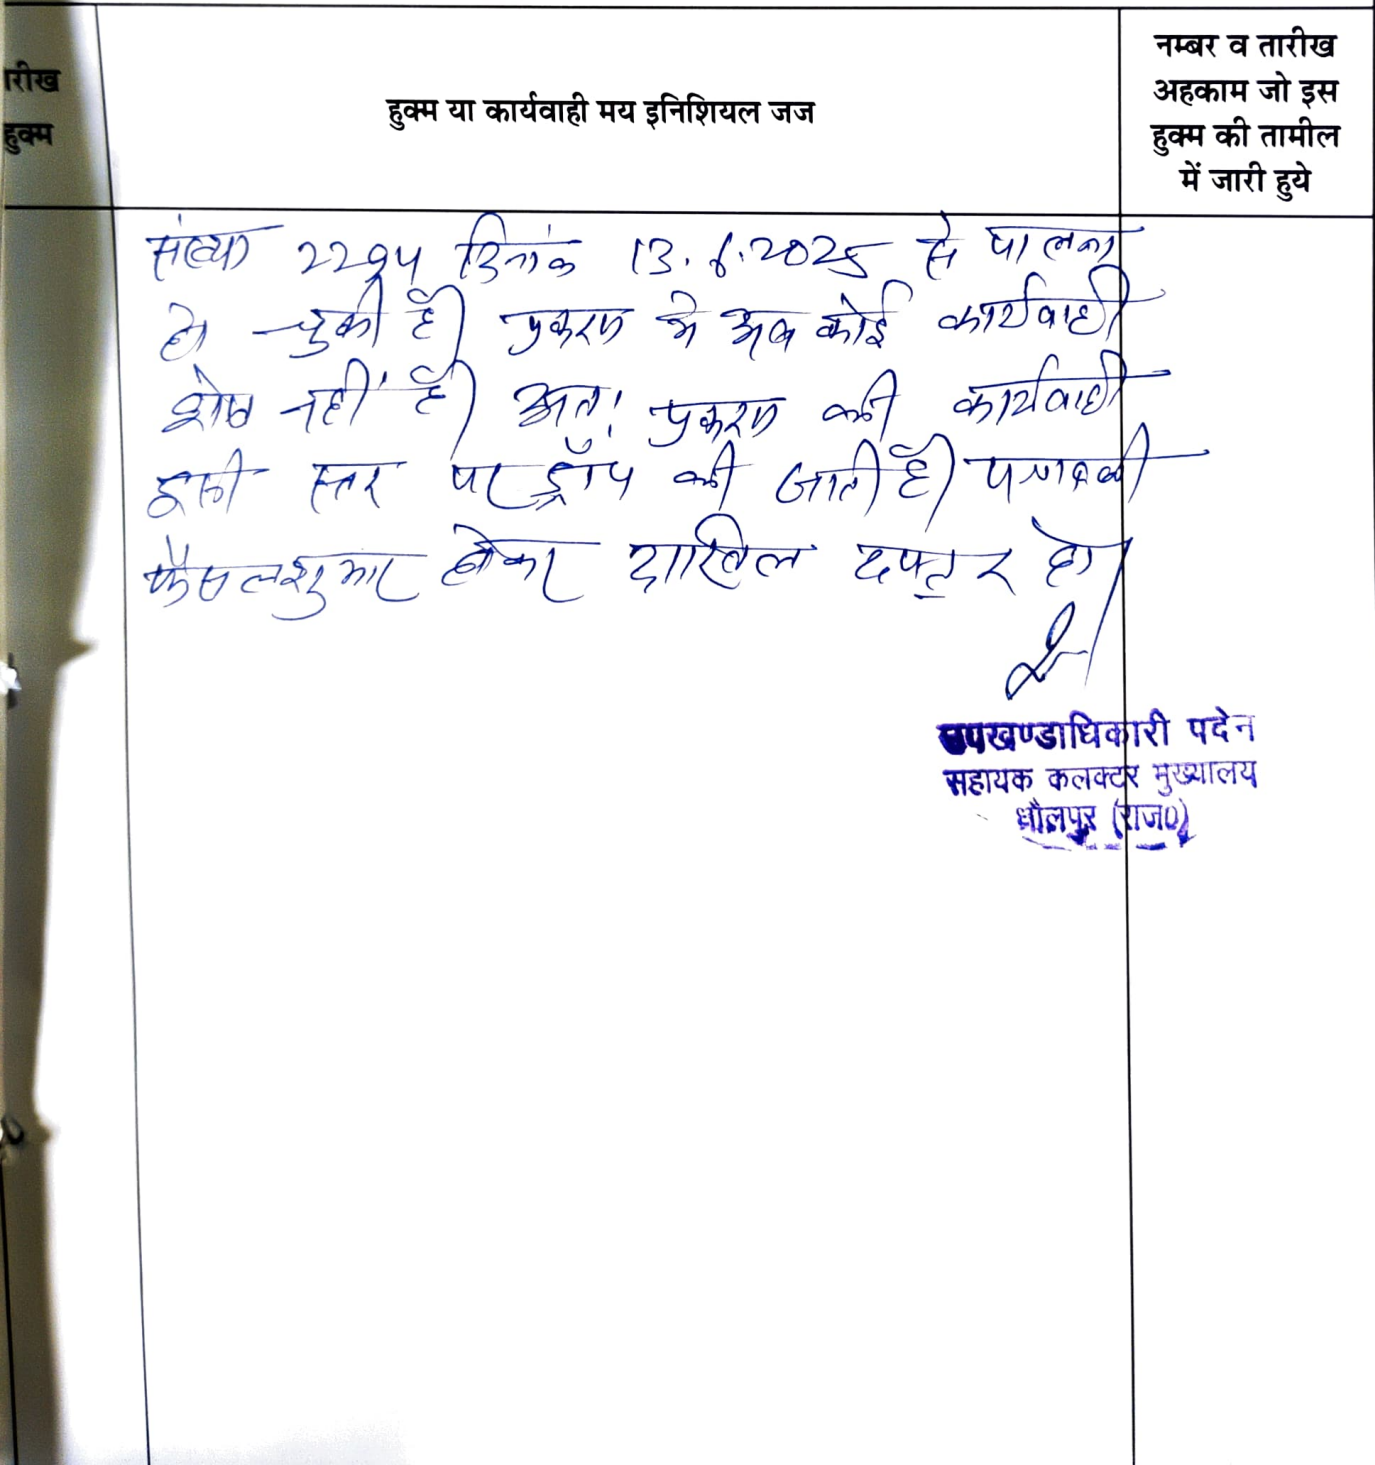 तारीख
हुक्म
हुक्म या कार्यवाही मय इनिशियल जज
नम्बर व तारीख
अहकाम जो इस
हुक्म की तामील
में जारी हुये
संख्या दिनांक 13.6.2025 से पालना
हो चुकी है। प्रकरण मे अब कोई कार्यवाही
शेष नहीं है। अतः प्रकरण की कार्यवाही
इसी स्तर पर ड्रॉप की जाती है। पत्रावली
फैसलशुमार होकर दाखिल दफ्तर हो।
उपखण्डाधिकारी पदेन
सहायक कलक्टर मुख्यालय
धौलपुर (राज०)